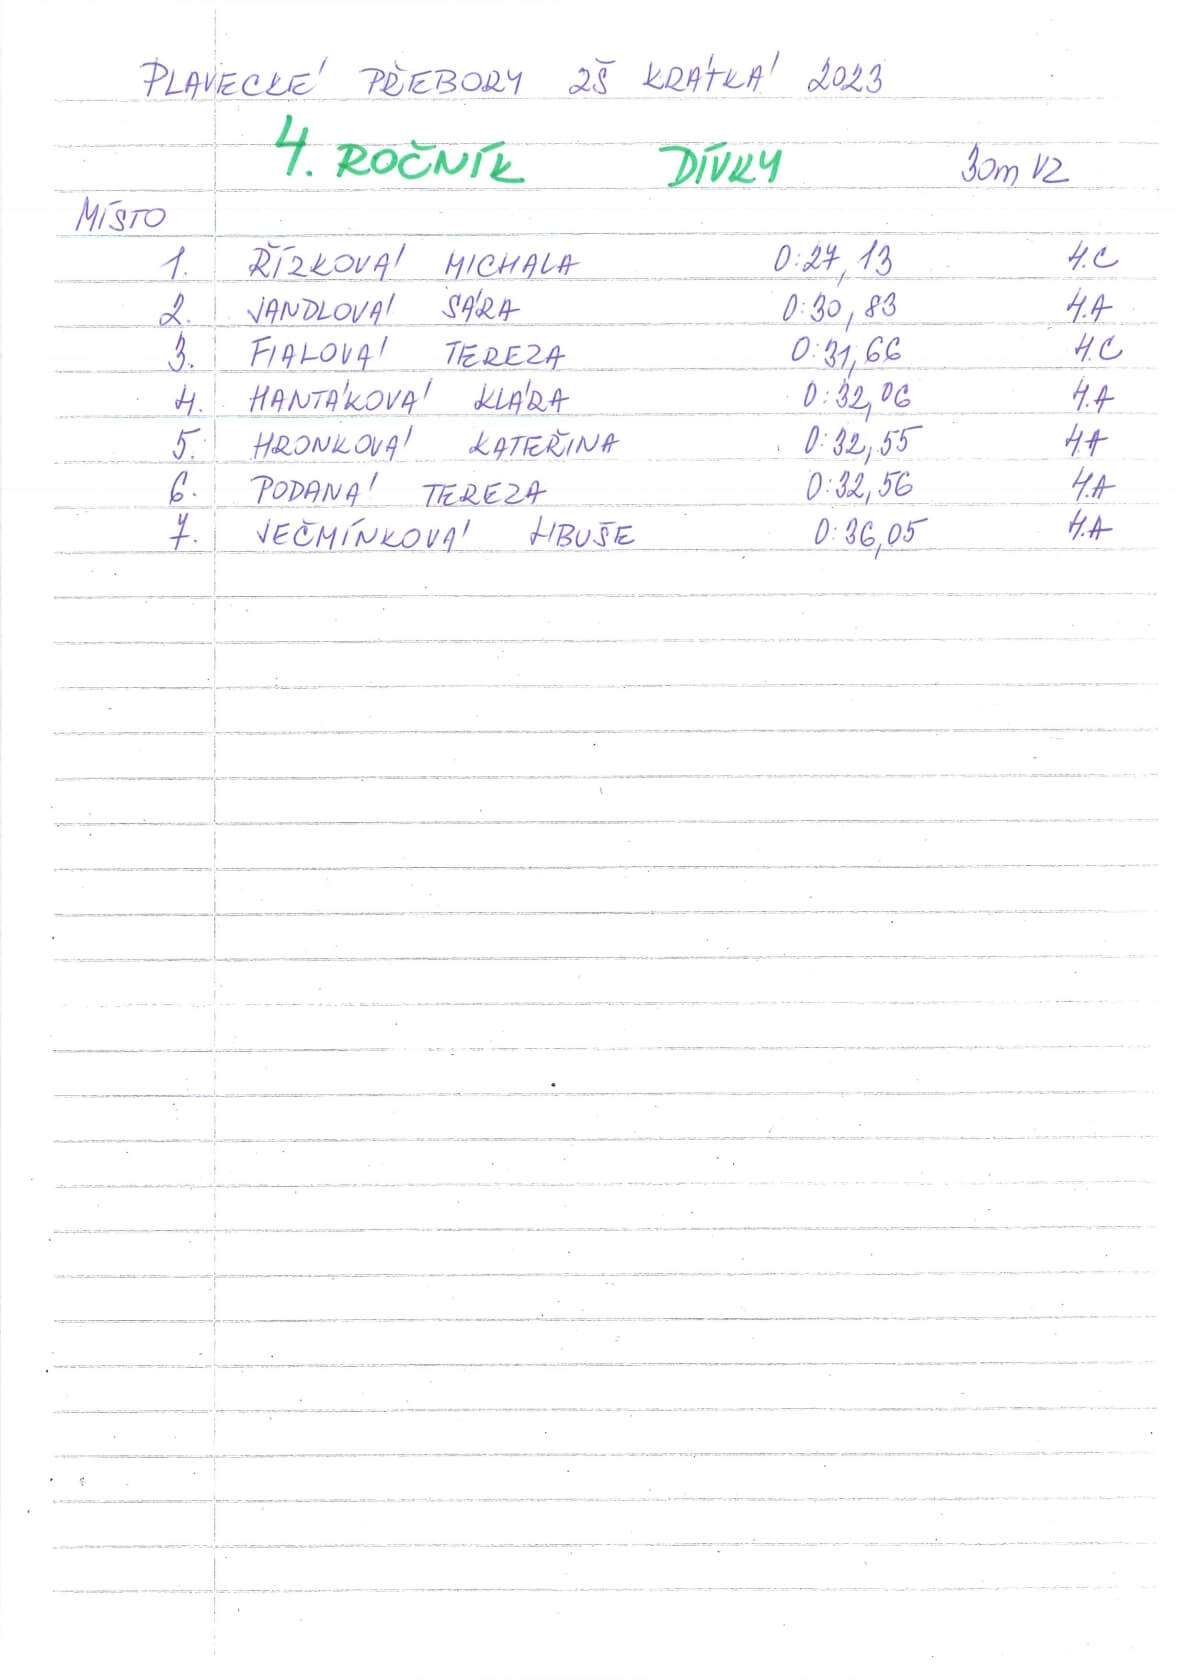 PLAVECKÉ PŘEBORY ZŠ KRÁTKÁ 2023
4. ROČNÍK DÍVKY 30m VZ
MÍSTO
1. ŘÍZKOVÁ MICHALA 0:27,13 4.C
2. JANDLOVÁ SÁRA 0:30,83 4.A
3. FIALOVÁ TEREZA 0:31,66 4.C
4. HANTÁKOVÁ KLÁRA 0:32,06 4.A
5. HRONKOVÁ KATEŘINA 0:32,55 4.A
6. PODANÁ TEREZA 0:32,56 4.A
7. JEČMÍNKOVÁ LIBUŠE 0:36,05 4.A